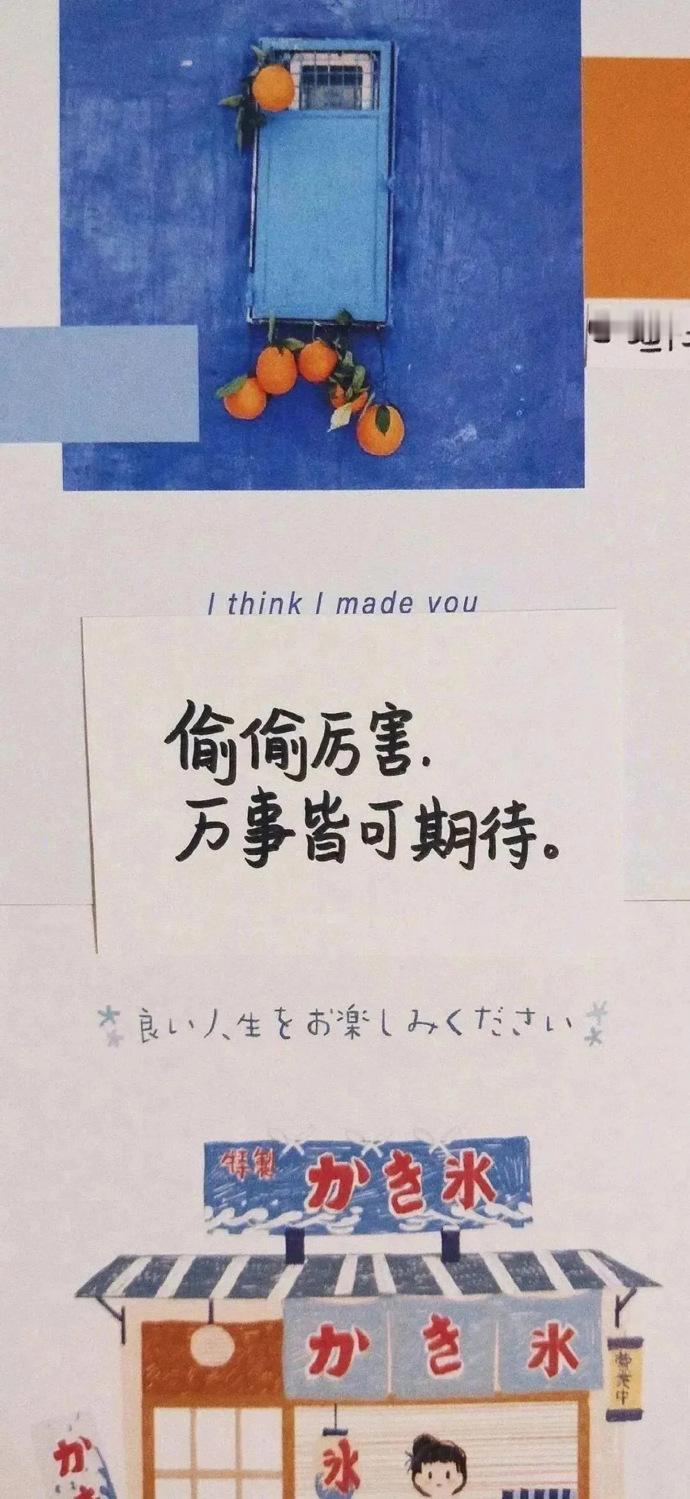 I think I made you
偷偷厉害.
万事皆可期待。
良い人生をお楽しみください
特製
かき氷
かき氷
営業中
氷
か